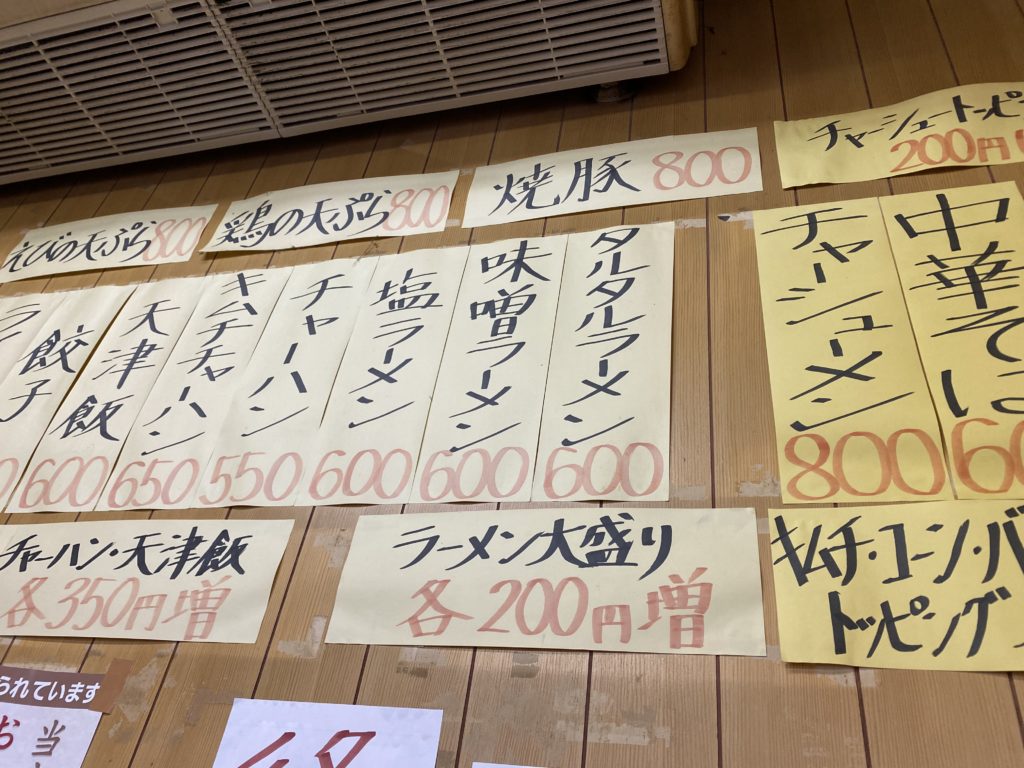 えびの天ぷら 800
鶏の天ぷら 800
焼豚 800
チャーシュートッピ
200円
餃子
天津飯 600
キムチチャーハン 650
チャーハン 550
塩ラーメン 600
味噌ラーメン 600
タルタルラーメン 600
チャーシューメン 800
中華そば 60
チャーハン・天津飯
各350円増
ラーメン大盛り
各200円増
キムチ・コーン・バ
トッピング
られています
お
当